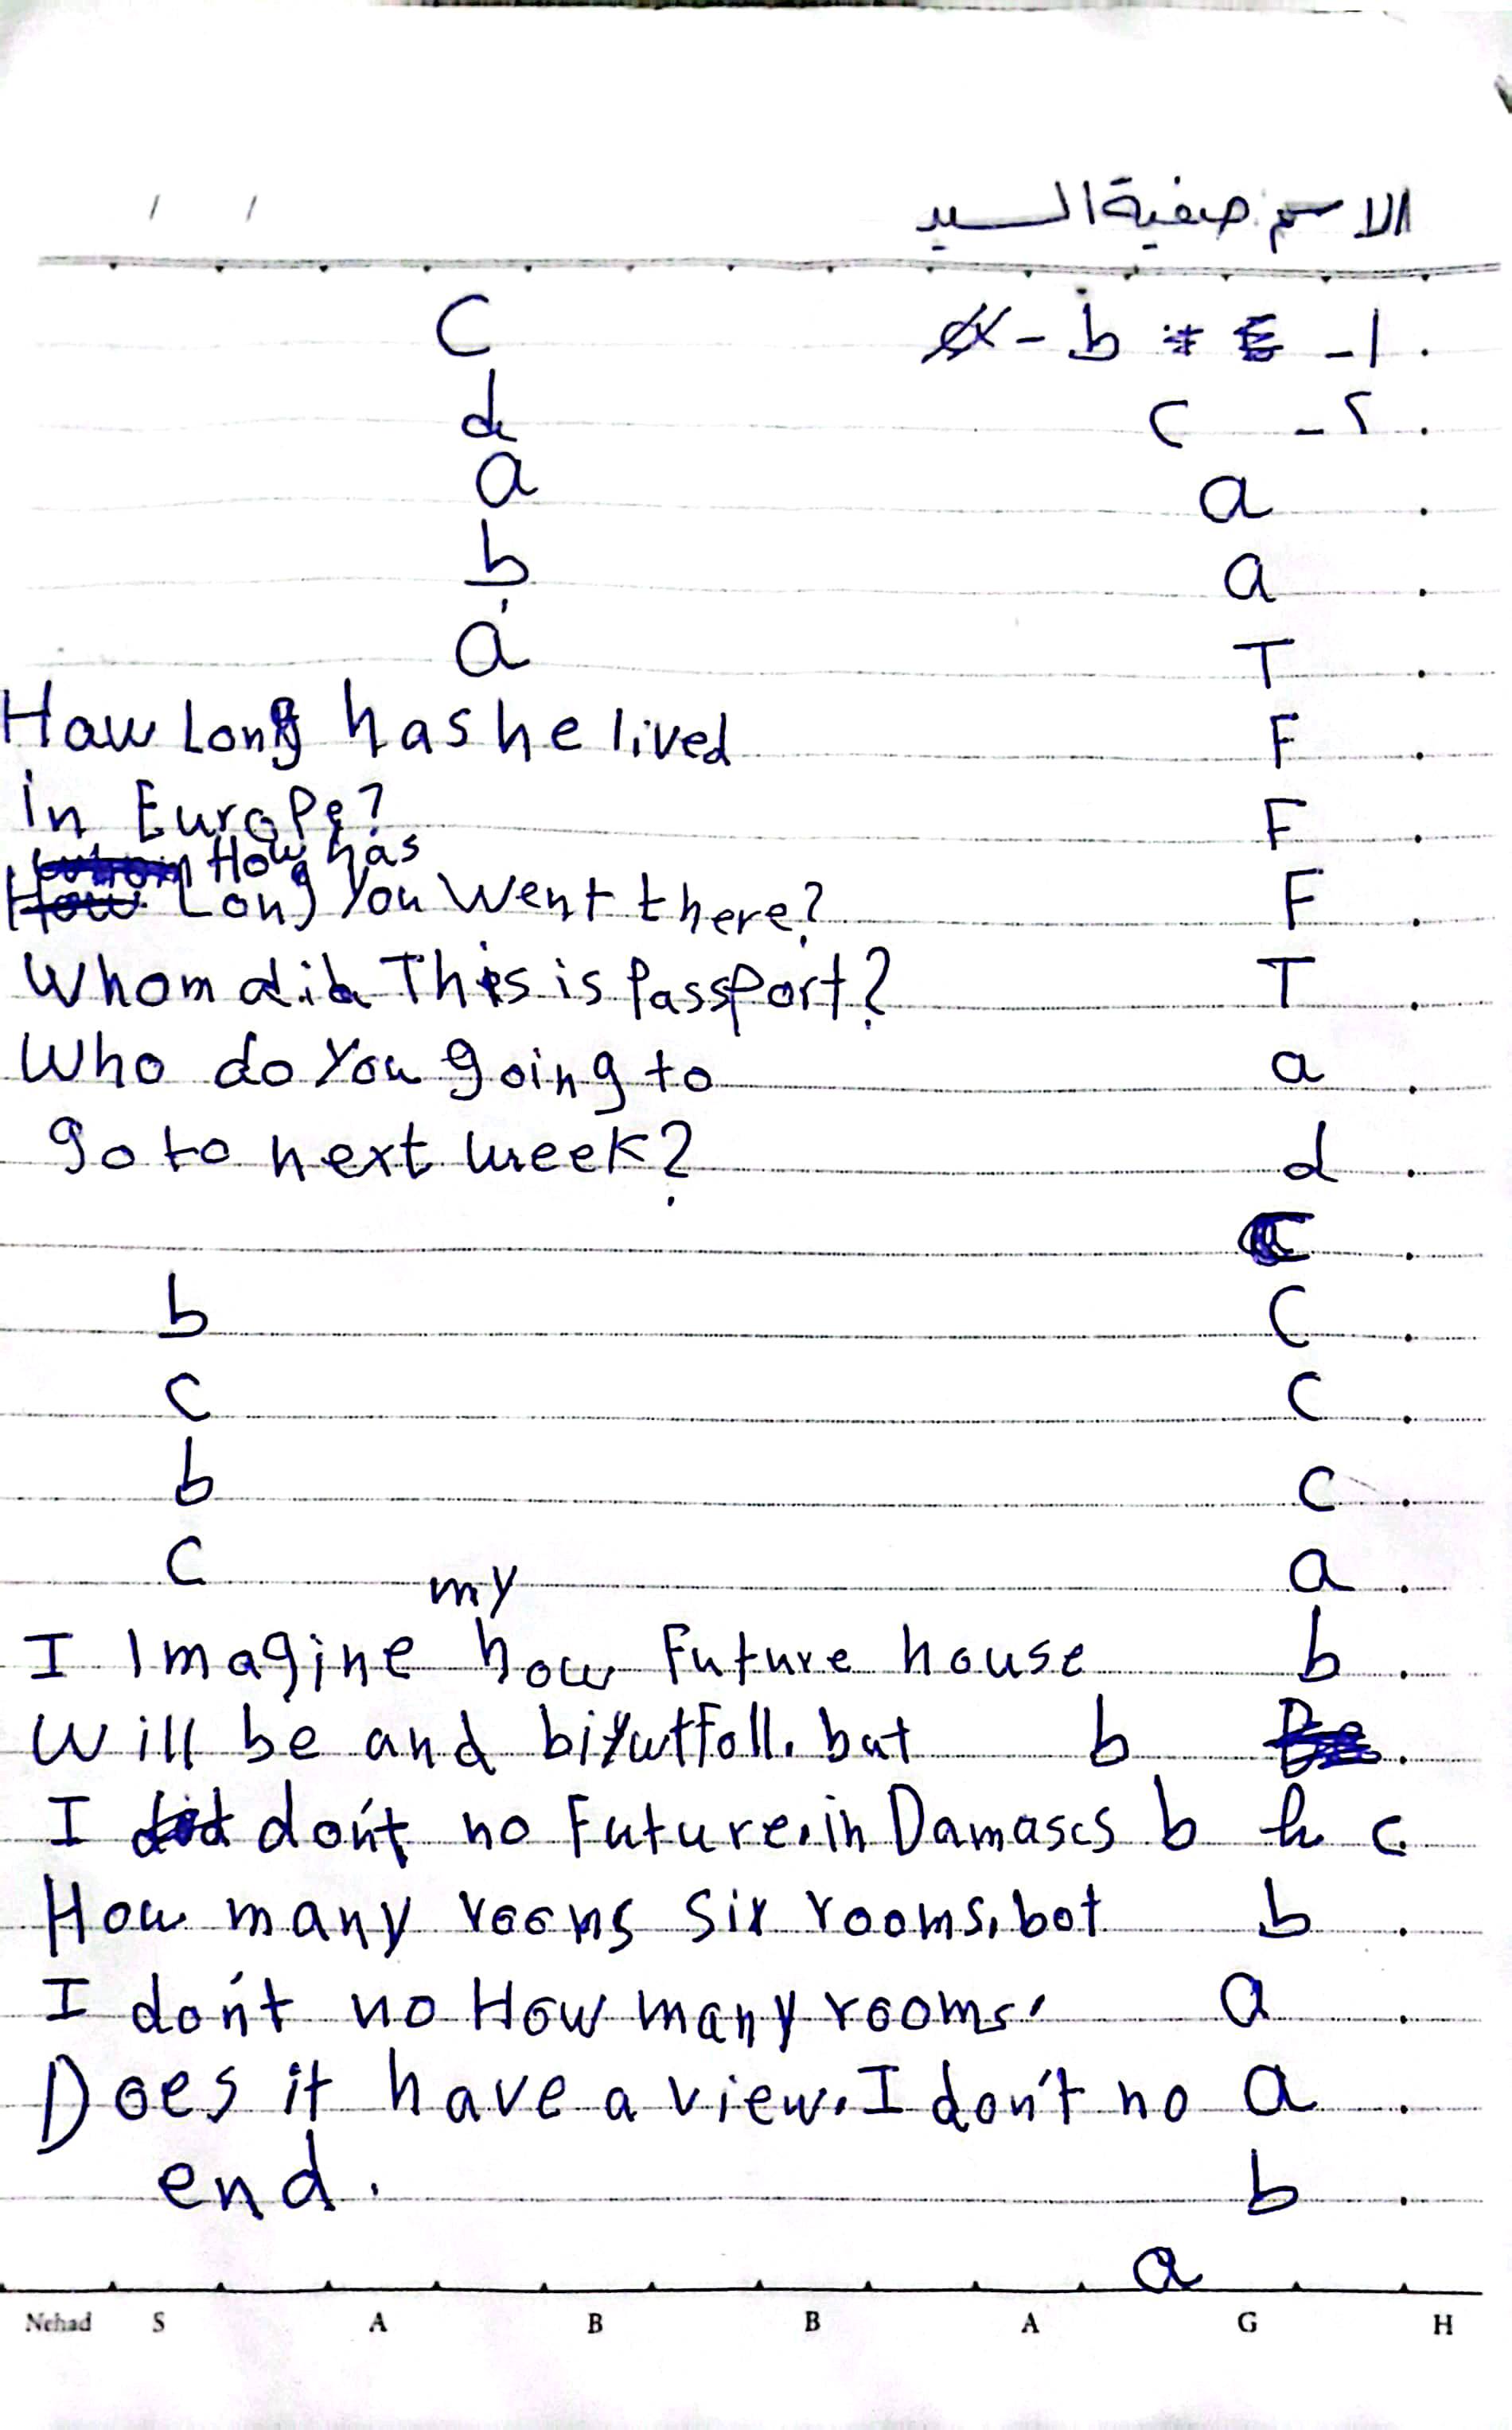 الاسم صفية السيد
1- b
٢- c
a
a
T
F
F
F
T
a
d
c
c
c
c
a
b
b
b c
b
a
a
b
a
C
d
a
b
a
Haw Long has he lived
in Europe?
How has
Long you went there?
Whom did This is Passport?
Who do You going to
go to next week?
b
c
b
c
my
I Imagine how Future house
Will be and biyutfoll. but
I don't no Future. in Damascs
How many rooms six rooms, bot
I don't no How many rooms.
Does it have a view. I don't no
end.
Nehad S A B B A G H